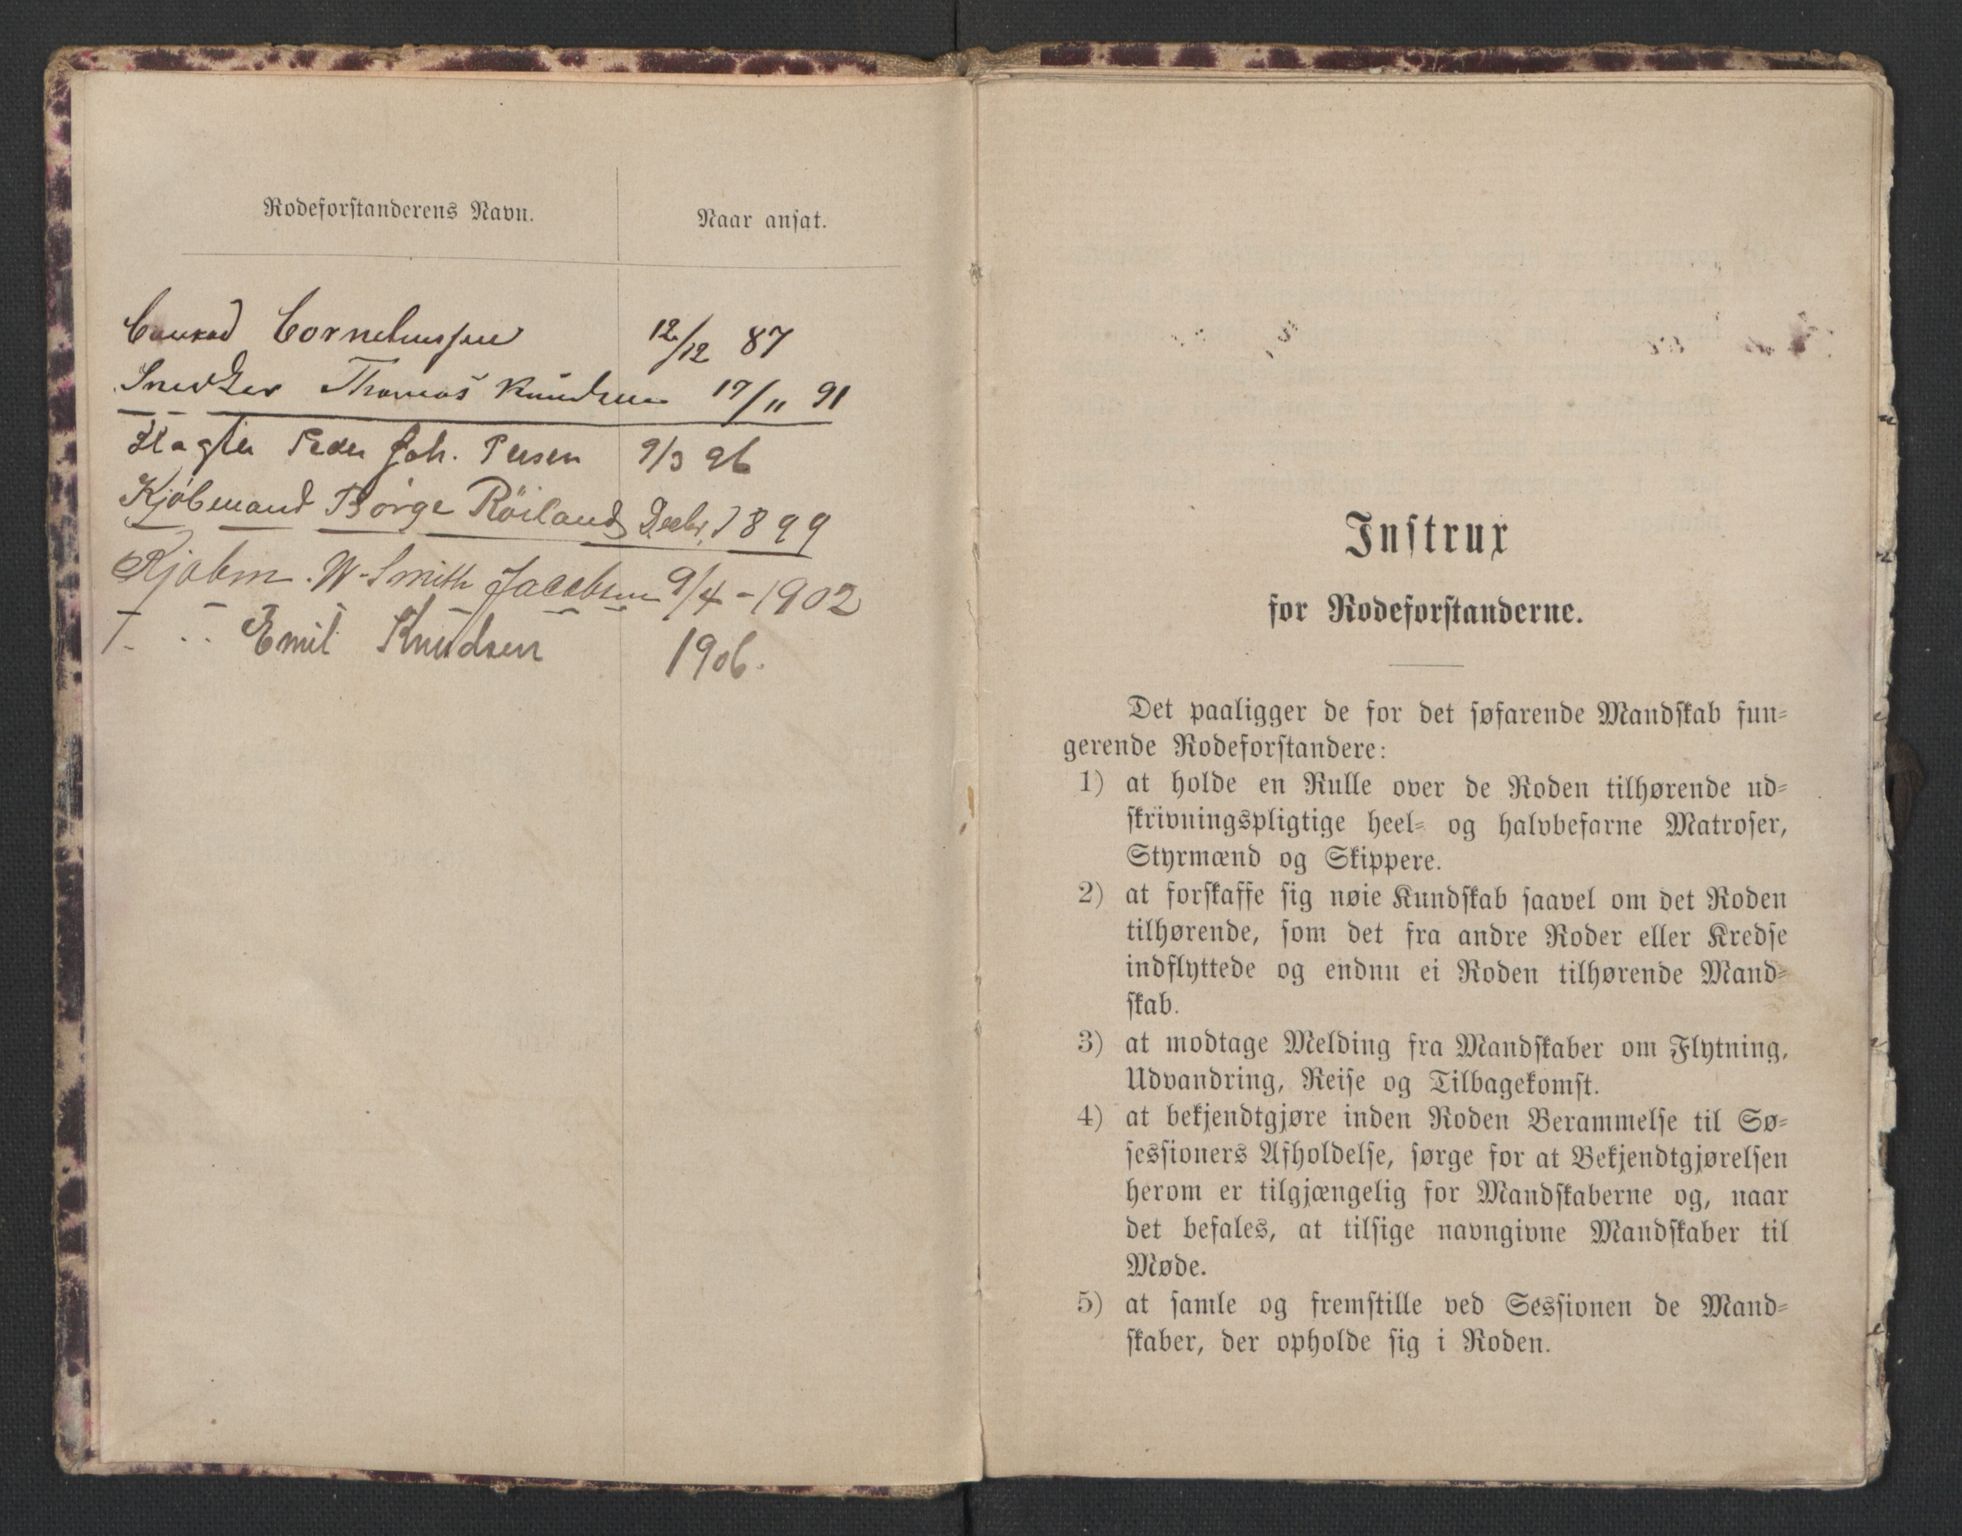 Rodeforstanderens Navn. Naar ansat.
Conrad Corneliussen 12/12 87
Snedker Thomas Knudsen 17/11 91
Slagter Peder Joh. Persen 9/3 96
Kjøbmand Børge Röiland Decbr. 1899
Kjøbm. W. Smith Jacobsen 9/4 - 1902
Emil Knudsen 1906.
Instrux
for Rodeforstanderne.
Det paaligger de for det søfarende Mandskab fun-
gerende Rodeforstandere:
1) at holde en Rulle over de Roden tilhørende ud-
skrivningspligtige heel- og halvbefarne Matroser,
Styrmænd og Skippere.
2) at forskaffe sig nøie Kundskab saavel om det Roden
tilhørende, som det fra andre Roder eller Kredse
indflyttede og endnu ei Roden tilhørende Mand-
skab.
3) at modtage Melding fra Mandskaber om Flytning,
Udvandring, Reise og Tilbagekomst.
4) at bekjendtgjøre inden Roden Berammelse til Sø-
sessioners Afholdelse, sørge for at Bekjendtgjørelsen
herom er tilgjængelig for Mandskaberne og, naar
det befales, at tilsige navngivne Mandskaber til
Møde.
5) at samle og fremstille ved Sessionen de Mand-
skaber, der opholde sig i Roden.